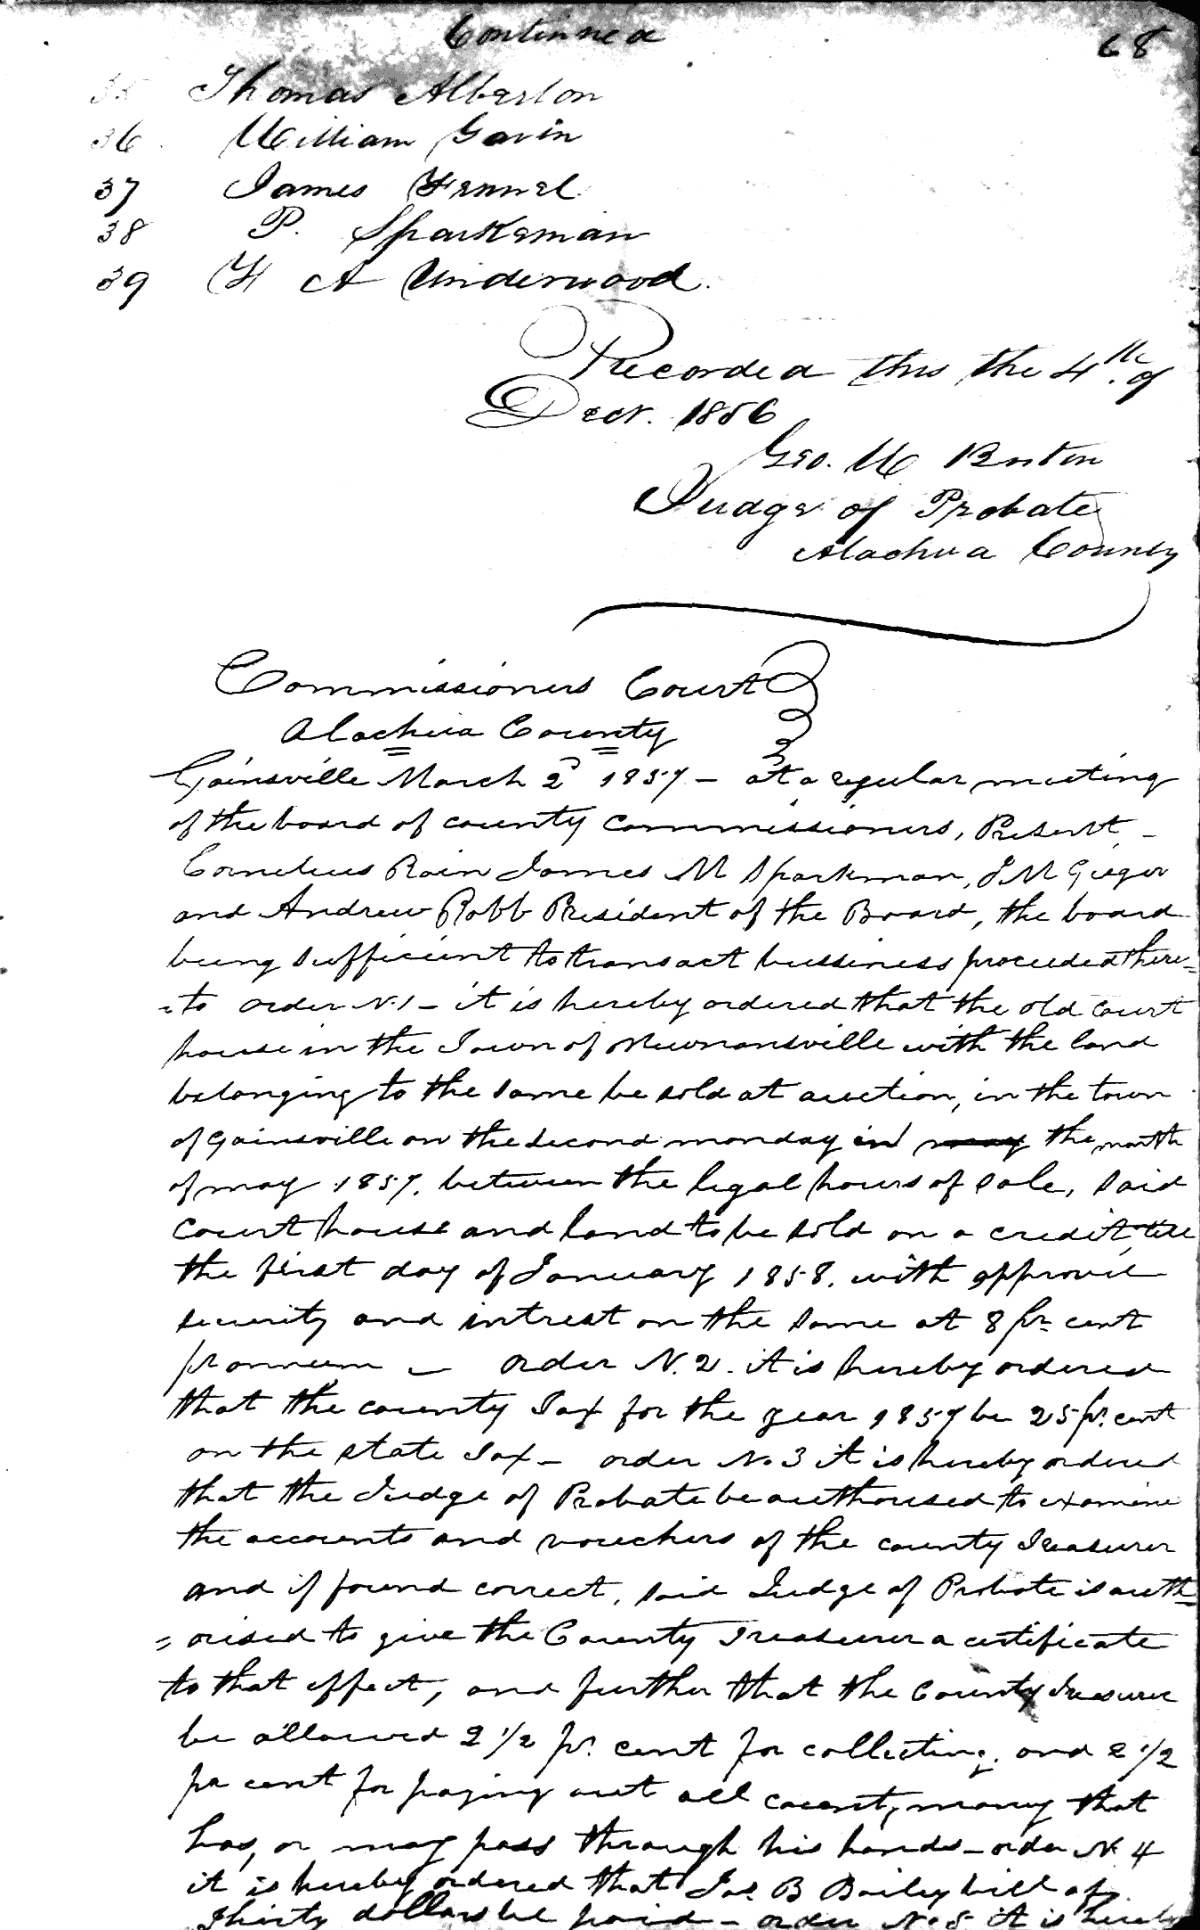 Continued 68
35 Thomas Alberson
36 William Gavin
37 James Fennel
38 P. Sparkeman
39 H A Underwood.
Recorded this the 4th of
Decr. 1856
Geo. W
Judge of Probate
Alachua County
Commissioners Court
Alachua County
Gainsville March 2d 1857 - at a regular meeting
of the board of county commissioners, Present -
Cornelius Rain James M Sparkman, J M Geiger
and Andrew Robb President of the Board, the board
being sufficient to transact bussiness proceeded there=
=to order N.1 - it is hereby ordered that the old court
house in the Town of Newnansville with the land
belonging to the same be sold at auction, in the town
of Gainsville on the second monday in may the month
of may 1857. between the legal hours of sale, said
court house and land to be sold on a credit till
the first day of January 1858. with approved
security and intrest on the same at 8 pr cent
pr annum - order N.2. it is hereby ordered
that the county Tax for the year 1857 be 25 pr. cent
on the state Tax - order No 3 it is hereby ordered
that the Judge of Probate be authorised to examine
the accounts and vouchers of the county Treasurer
and if found correct, said Judge of Probate is auth=
=orised to give the County Treasurer a certificate
to that effect, and further that the County Treasurer
be allowed 2 1/2 pr. cent for collecting, and 2 1/2
pr cent for paying out all county money that
has, or may pass through his hands - order N 4
it is hereby ordered that Jas. B Bailey bill of
Thirty dollars be paid - order No 5 it is hereby